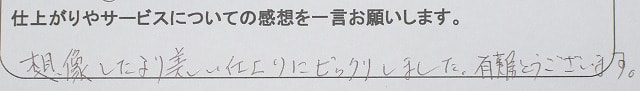 仕上がりやサービスについての感想を一言お願いします。
想像したより美しい仕上りにビックリしました。有難とうございます。